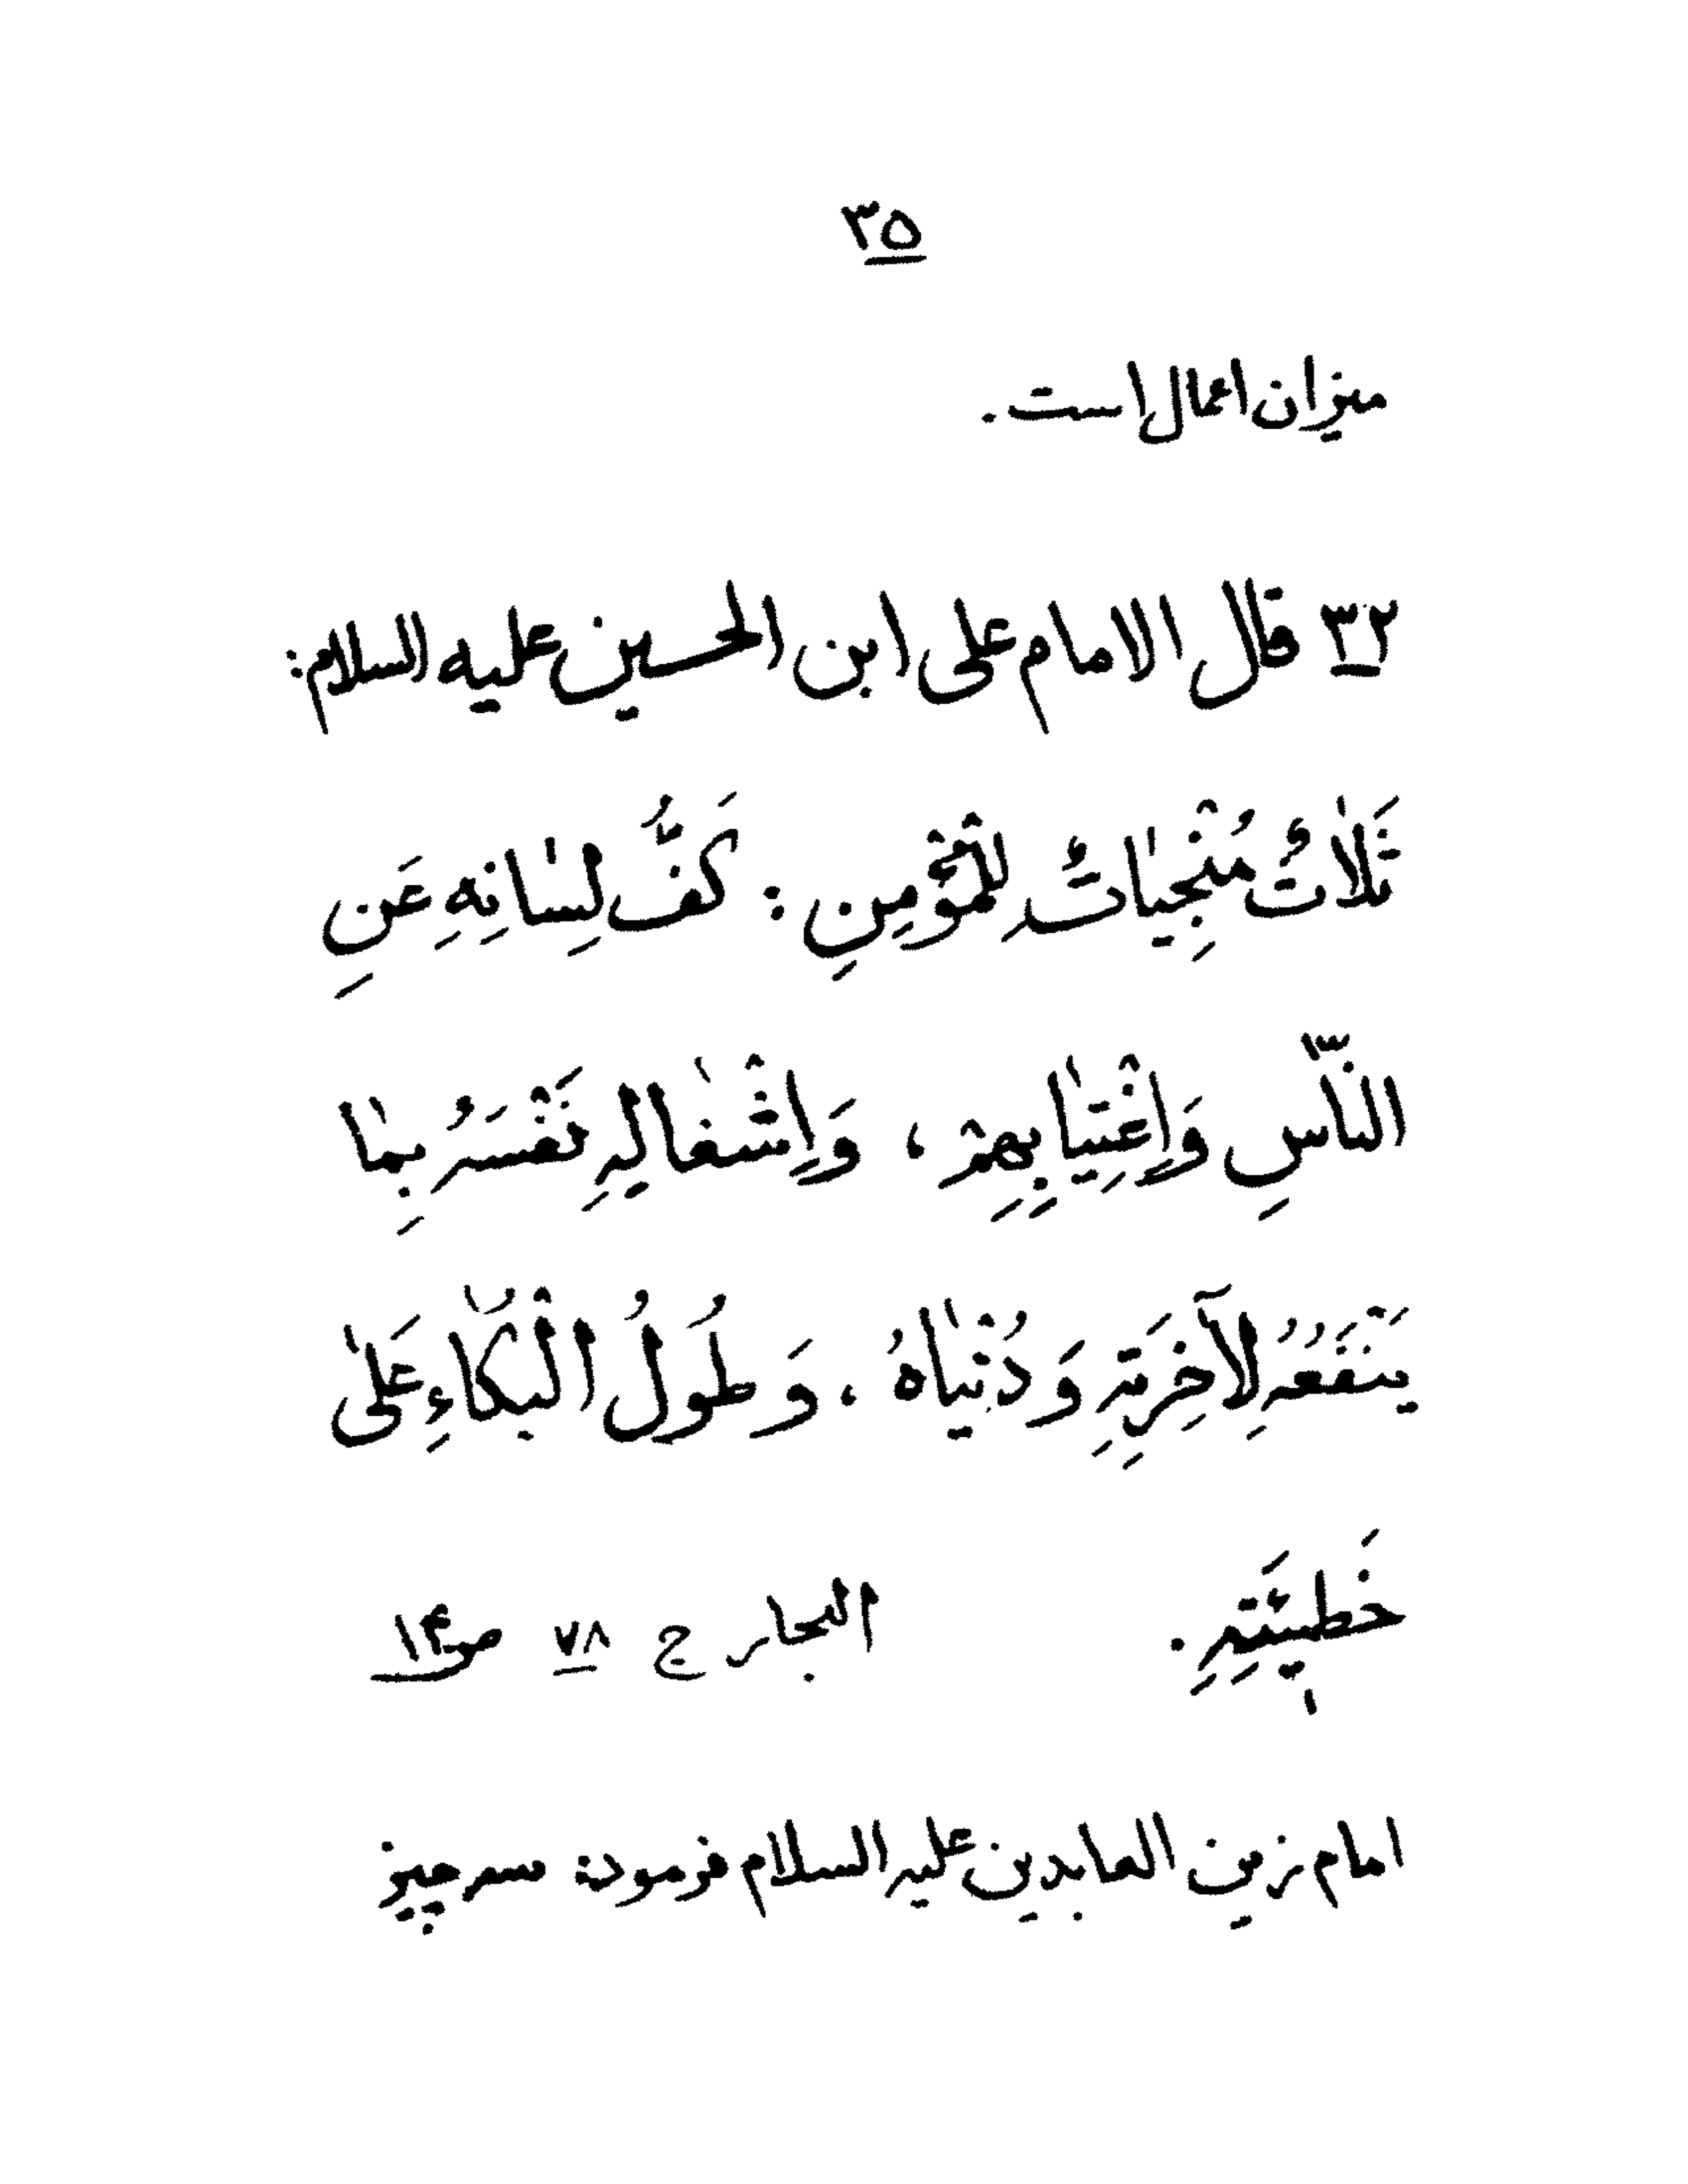 ۳۵
میزان اعمال است.
۳۲ قال الامام علی ابن الحسین علیه السلام:
ثَلاٰثٌ مُنْجِیٰاتٌ لِلْمُؤْمِنِ : کَفُّ لِسٰانِهِ عَنِ
النّٰاسِ وَاِغْتِیٰابِهِمْ ، وَاِشْغٰالِهِ نَفْسَهُ بِمٰا
یَنْفَعُهُ لِآخِرَتِهِ وَ دُنْیٰاهُ ، وَ طُولُ الْبُکٰاءِ عَلیٰ
خَطیئَتِهِ. البحار ج ۷۸ ص۱۴۰
امام زین العابدین علیه السلام فرموده سه چیز